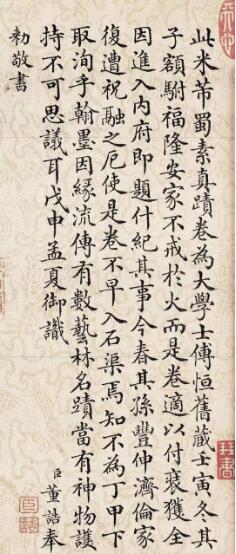 此米芾蜀素真蹟卷為大學士傅恒舊藏壬寅冬其
子額駙福隆安家不戒於火而是卷適以付裝獲全
因進入內府即題什紀其事今春其孫豐伸濟倫家
復遭祝融之厄使是卷不早入石渠焉知不為丁甲下
取洵乎翰墨因緣流傳有數藝林名蹟當有神物護
持不可思議耳戊申孟夏御識
臣董誥奉
勅敬書